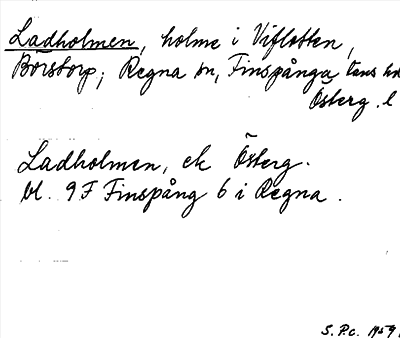 Ladholmen, holme i Viflotten,
Borstorp; Regna sn, Finspånga läns hd
Österg. l
Ladholmen, ek Österg.
bl. 9F Finspång 6 i Regna.
S. P.c. 1959